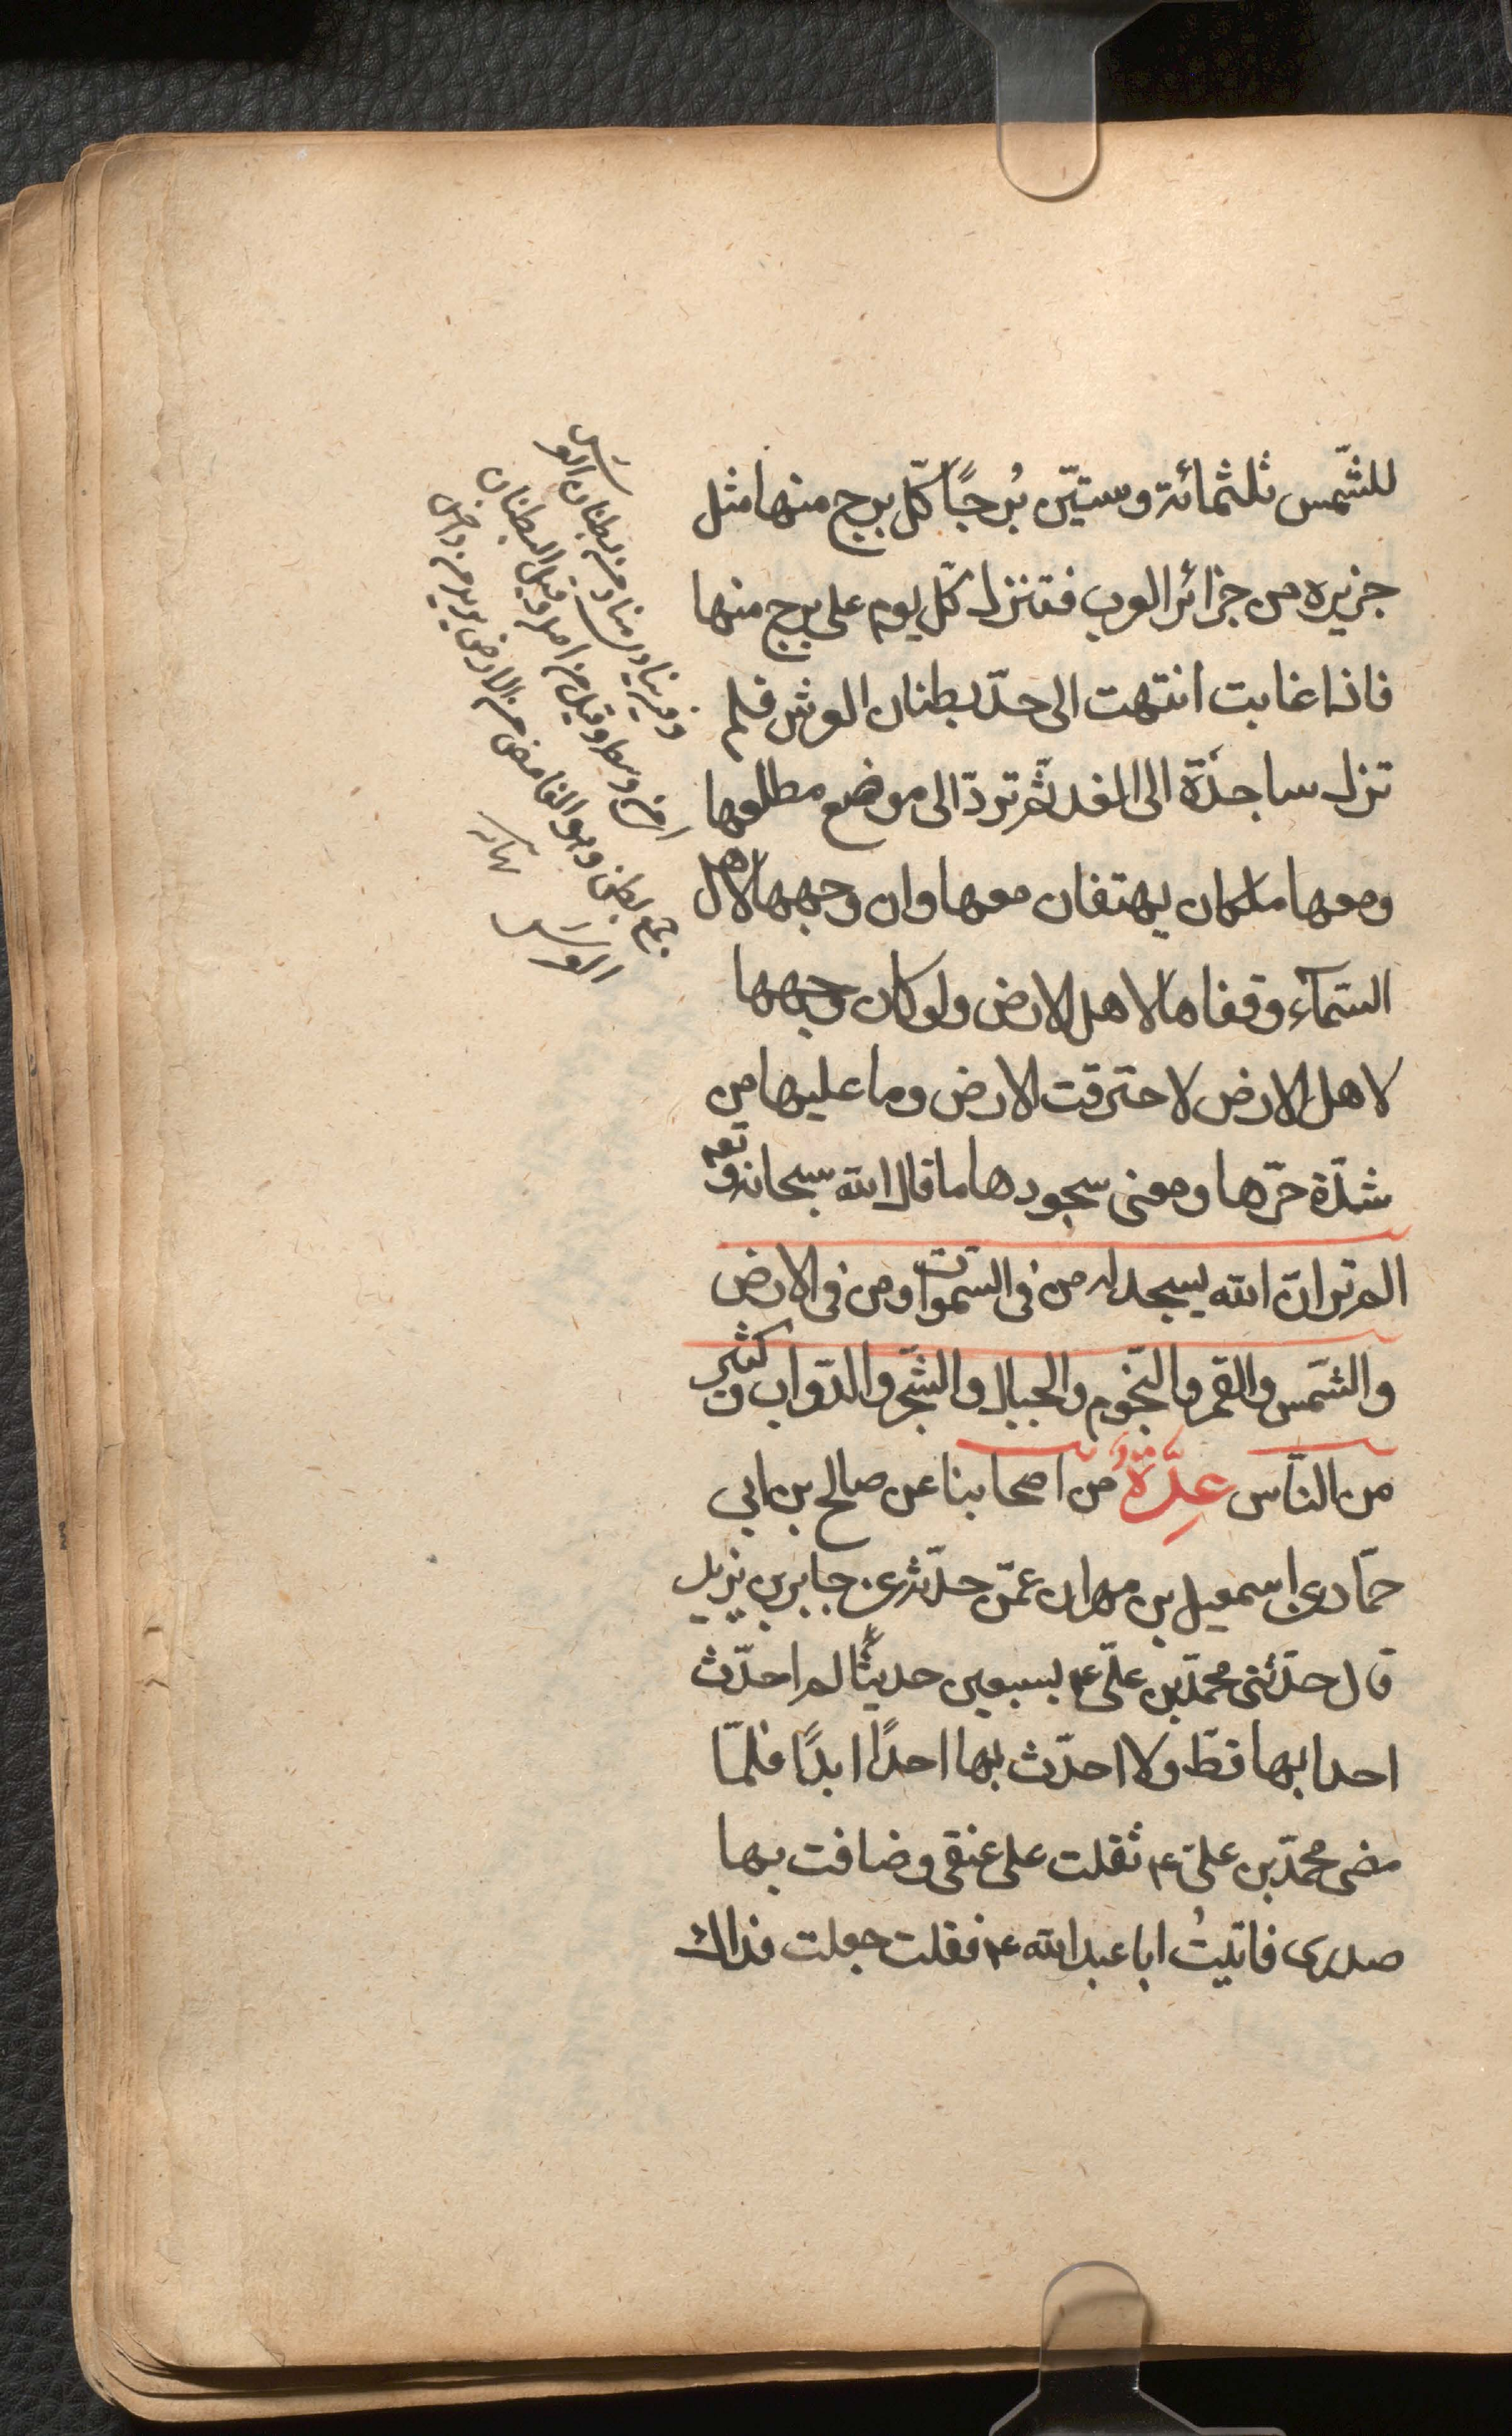 للشّمس ثلثمائة وستيّن بُرجًا كلّ برج منها مثل
جزيره من جزائر العرب فتنزل كلّ يوم على برج منها
فاذا غابت انتهت الى حدّ بطنان العرش فلم
تزل ساجدة الى الغد ثمّ تردّ الى موضع مطلعها
ومعها ملكان يهتفان معها وان وجهها لاهل
السّمآء وقفاها لاهل الارض ولو كان وجهها
لاهل الارض لاحترقت الارض وما عليها من
شدّة حرّها ومعنى سجودها ما قال الله سبحانه وتعه
الم تر انّ الله يسجد له من فى السّموات ومن فى الارض
والشّمس والقمر والنّجوم والجبال والشّجر والدّواب وكثير
من النّاس عِدّةٌ من اصحابنا عن صالح بن ابى
حمّاد عن اسمعيل بن مهران عمّن حدّثه عن جابر بن يزيد
قال حدّثنى محمّد بن علىّ ع بسبعين حديثًا لم احدّث
احدا بها قطّ ولا احدّث بها احدًا ابدًا فلمّا
مضى محمّد بن علىّ ع ثقلت على عنقى وضاقت بها
صدرى فاتيتُ ابا عبد الله ع فقلت جعلت فداك
وفيه ينادى مناد من بطنان العرش
اى من وسطه وقيل من اصله وقيل البطنان
جمع بطن وهو الغامض من الارض يريد من دواخل
العرش نهايه